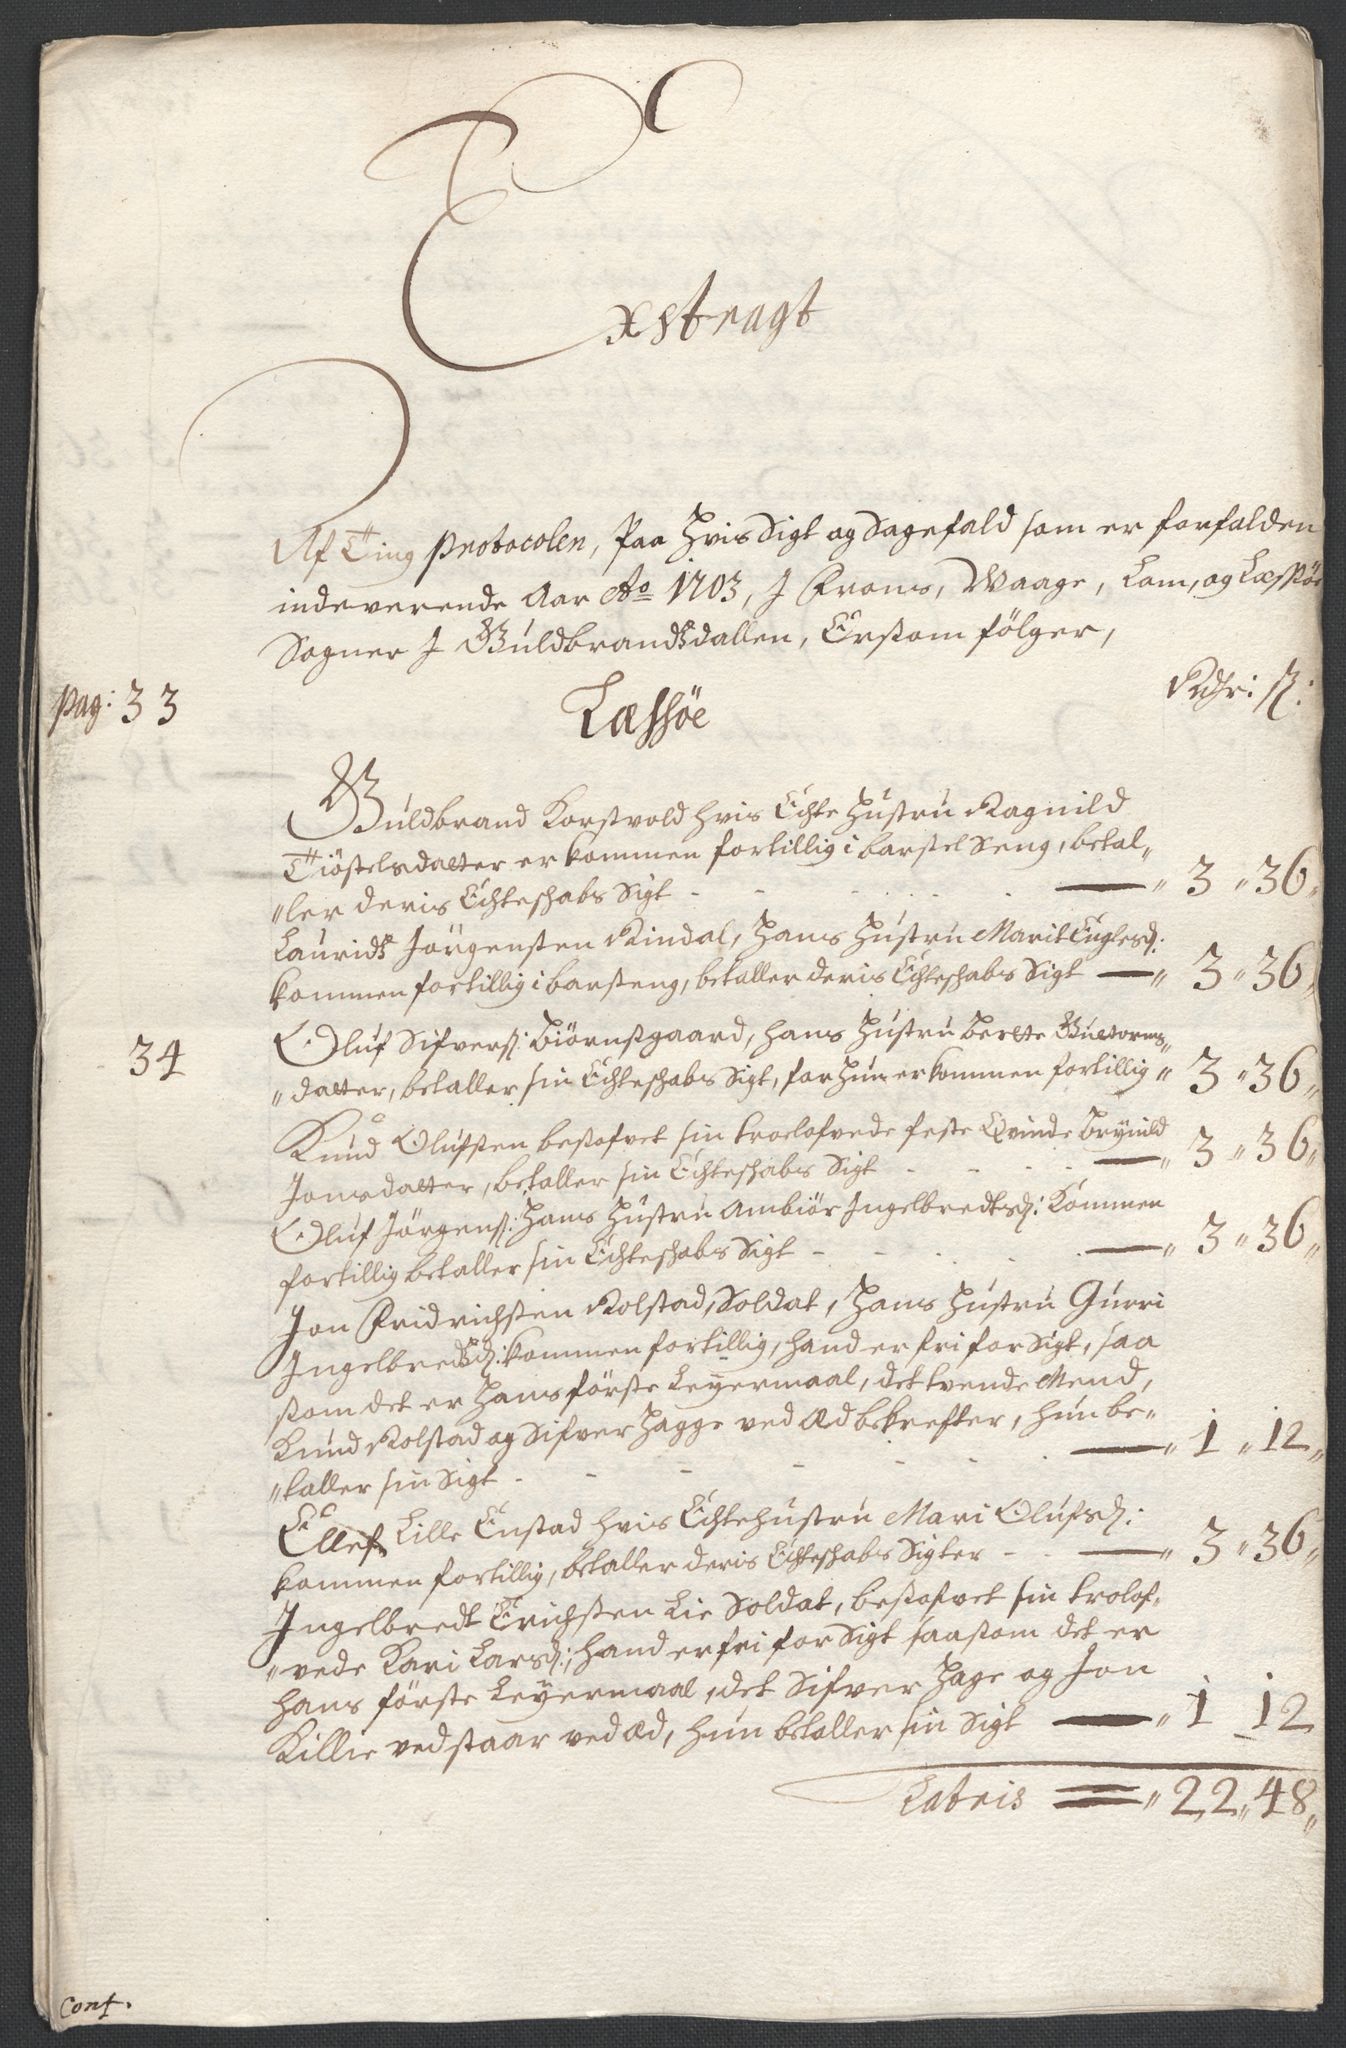 Exstragt
Af Ting protocolen, Paa Hvis Sigt og Sagefald som er forfalden
indeverende Aar Ao 1703, J Froms, Waage, Lom, og Læssöe
Sogner J Guldbrandsdallen, Ersom fölger,
Rdr: ß:
pag: 33 Læssöe
Guldbrand Korsvold hvis Echte Hustru Ragnild
Tiöstelsdatter er kommen fortillig i barsel Seng, betal-
"ler deris Echteskabs Sigt - - - - " 3 " 36 "
Lauridz Jörgensen Kindal, Hans Hustru Marit Englesd:
kommen fortillig i barseng, betaller deris Echteskabs Sigt " 3 " 36 "
34 Oluf Sifvers: Biörnsgaard, hans Hustru Berette Guttorms-
"datter, betaller sin Echteskabs Sigt, for Hun er kommen fortillig " 3 " 36 "
Knud Olufsen besofvet sin troelofvede feste Qvinde Brynild
Jonsdatter, betaller sin Echteskabs Sigt - - - - " 3 " 36 "
Oluf Jörgens: Hans Hustru Ambiör Ingelbredtsd: Kommen
fortillig betaller sin Echteskabs Sigt - - - - " 3 " 36 "
Jon Fridrichsen Rolstad, Soldat, Hans Hustru Gurri
Ingelbredsd: kommen fortillig, hand er fri for Sigt, saa
som det er Hans förste Leyermaal, det tvende Mend,
Knud Rolstad og Sifver Hagge ved Æd bekrefter, hun be-
"taller sin Sigt - - - - " 1 " 12 "
Ellef Lille Enstad hvis Echtehustru Mari Olufsd:
kommen fortillig, betaller deris Echteskabs Sigter - - " 3 " 36 "
Ingelbredt Erichsen Lie Soldat, besofvet sin trolof-
"vede Kari Larsd:, hand er fri for Sigt saasom det er
hans förste Leyermaal, det Sifver Hage og Jon
Killie vedstaar ved Æd, hun betaller sin Sigt " 1 12
Latris " 22 " 48 "
Cont.